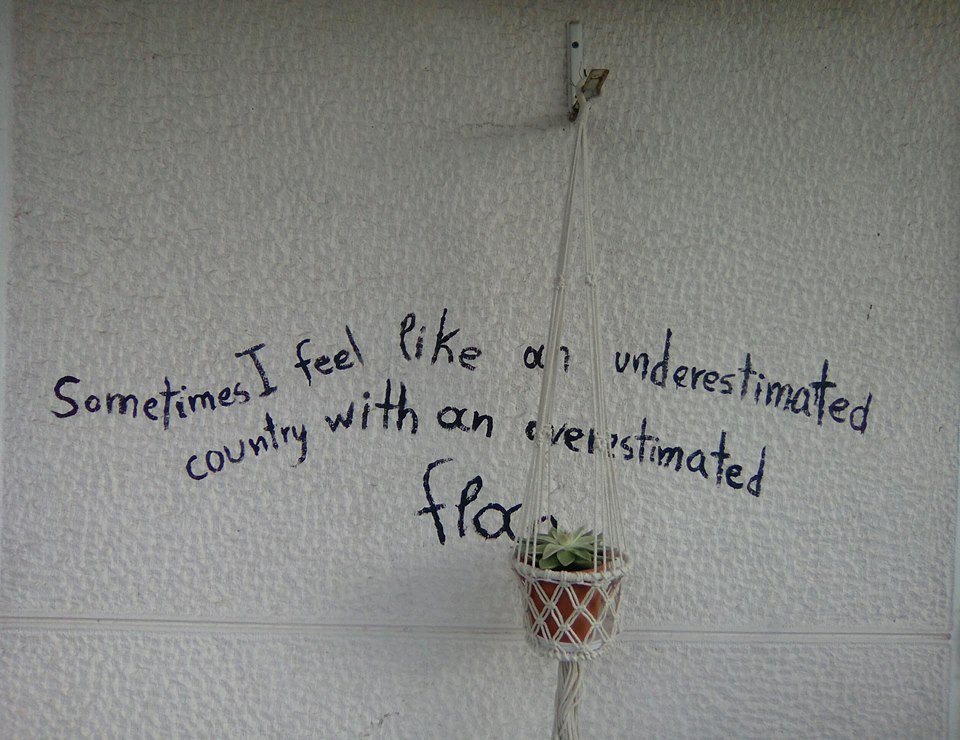 Sometimes I feel like an underestimated
country with an overestimated
flag